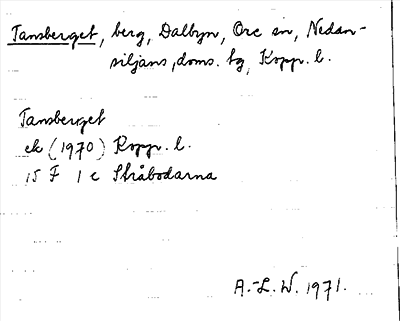 Tansberget, berg, Dalbyn, Ore sn, Nedan-
siljans, doms. tg, Kopp. l.
Tansberget
ek (1970) Kopp. l.
15 F 1 c Skråbodarna
A.-L. W. 1971.